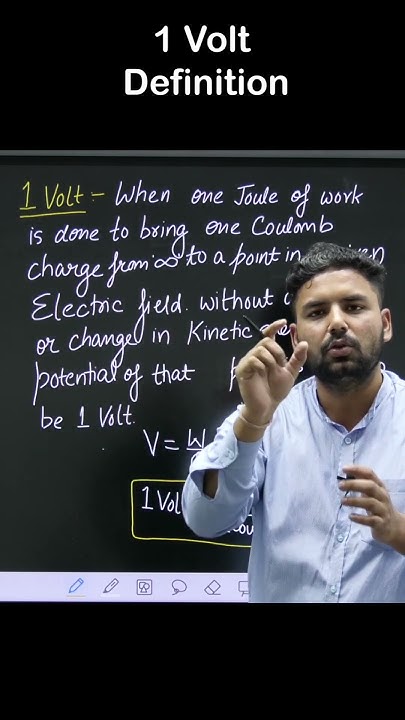 1 Volt
Definition
1 Volt :- When one Joule of work
is done to bring one Coulomb
charge from ∞ to a point in
Electric field. without
or change in Kinetic
potential of that
be 1 Volt.
V = W
1 Vol